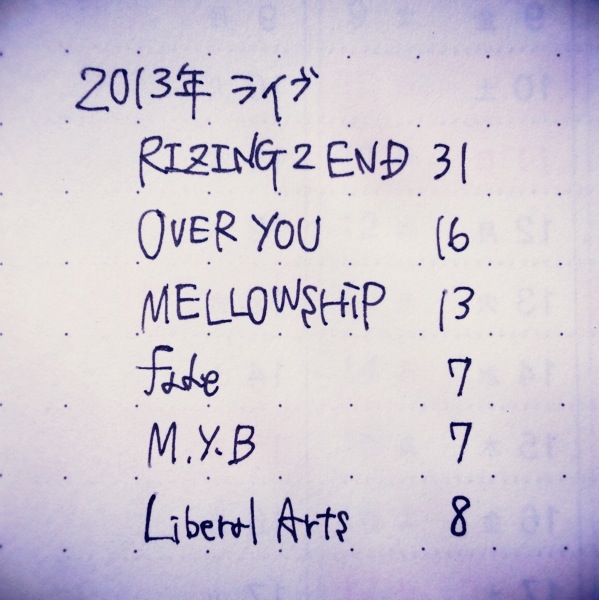 2013年 ライブ
RIZING 2 END 31
OVER YOU 16
MELLOWSHiP 13
fade 7
M.Y.B 7
Liberal Arts 8